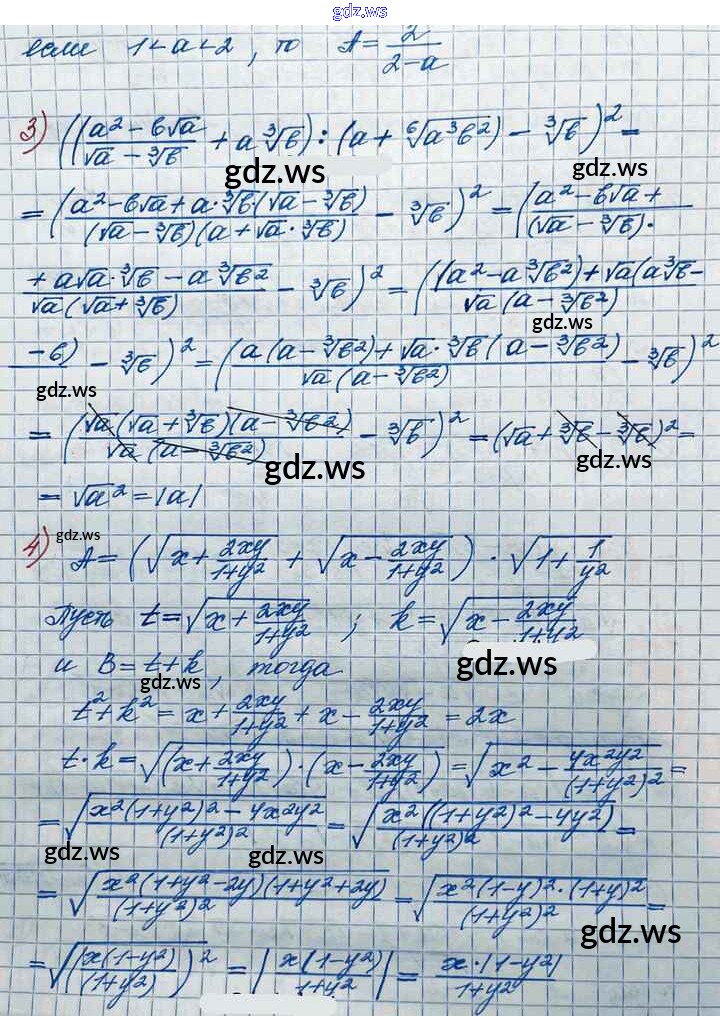 gdz.ws
если 1<a<2, то A = 2/(2-a)
3) (((a² - b√a)/(√a - ∛b) + a∛b) : (a + ⁶√(a³b²)) - ∛b)² =
gdz.ws gdz.ws
= ((a² - b√a + a·∛b(√a - ∛b))/((√a - ∛b)(a + √a·∛b)) - ∛b)² = ((a² - b√a +)/((√a - ∛b)·
(+ a√a·∛b - a∛b²)/(√a(√a + ∛b)) - ∛b)² = (((a² - a∛b²) + √a(a∛b -)/(√a(a - ∛b²))
gdz.ws
- b) - ∛b)² = ((a(a - ∛b²) + √a·∛b(a - ∛b²))/(√a(a - ∛b²)) - ∛b)²
gdz.ws
= ((√a(√a + ∛b)(a - ∛b²))/(√a(a - ∛b²)) - ∛b)² = (√a + ∛b - ∛b)² =
gdz.ws gdz.ws
= √a² = |a|
4) gdz.ws A = (√(x + 2xy/(1+y²)) + √(x - 2xy/(1+y²))) · √(1 + 1/y²)
Пусть t = √(x + 2xy/(1+y²)) ; k = √(x - 2xy/(1+y²))
и B = t + k, тогда
gdz.ws gdz.ws
t² + k² = x + 2xy/(1+y²) + x - 2xy/(1+y²) = 2x
t·k = √((x + 2xy/(1+y²))·(x - 2xy/(1+y²))) = √(x² - 4x²y²/(1+y²)²) =
= √((x²(1+y²)² - 4x²y²)/(1+y²)²) = √((x²((1+y²)² - 4y²))/(1+y²)²) =
gdz.ws gdz.ws
= √((x²(1+y²-2y)(1+y²+2y))/(1+y²)²) = √((x²(1-y)²·(1+y)²)/(1+y²)²) =
gdz.ws
= √((x(1-y²)/(1+y²))²) = |x(1-y²)/(1+y²)| = x·|1-y²|/(1+y²)